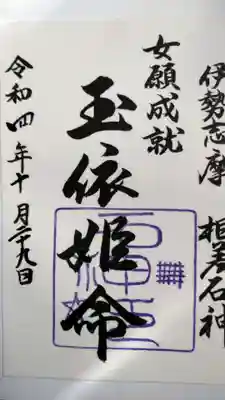 伊勢志摩 相差石神
女願成就
玉依姫命
令和四年十月二十九日
石神